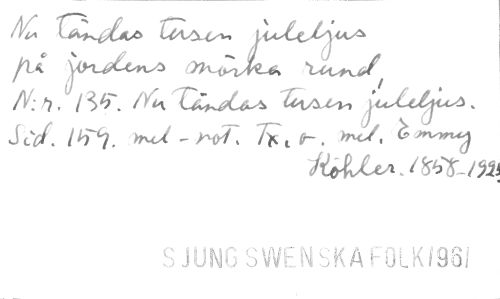 Nu tändas tusen juleljus
på jordens mörka rund,
N:r. 135. Nu tändas tusen juleljus.
Sid. 159. mel-not. Tx. o. mel. Emmy
Köhler. 1858-1925
SJUNG SWENSKA FOLK 1961